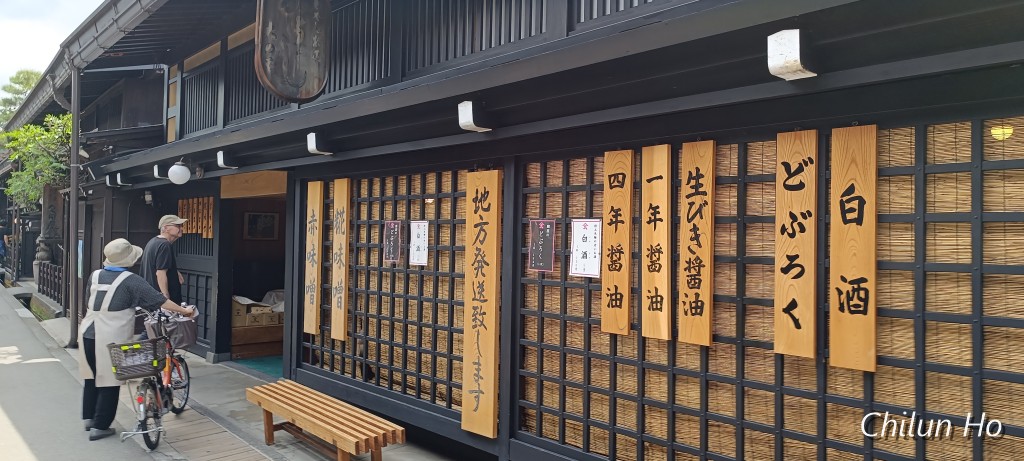 赤味噌
糀味噌
地方発送致します
どぶろく
白酒
四年醤油
一年醤油
生びき醤油
どぶろく
白酒
Chilun Ho